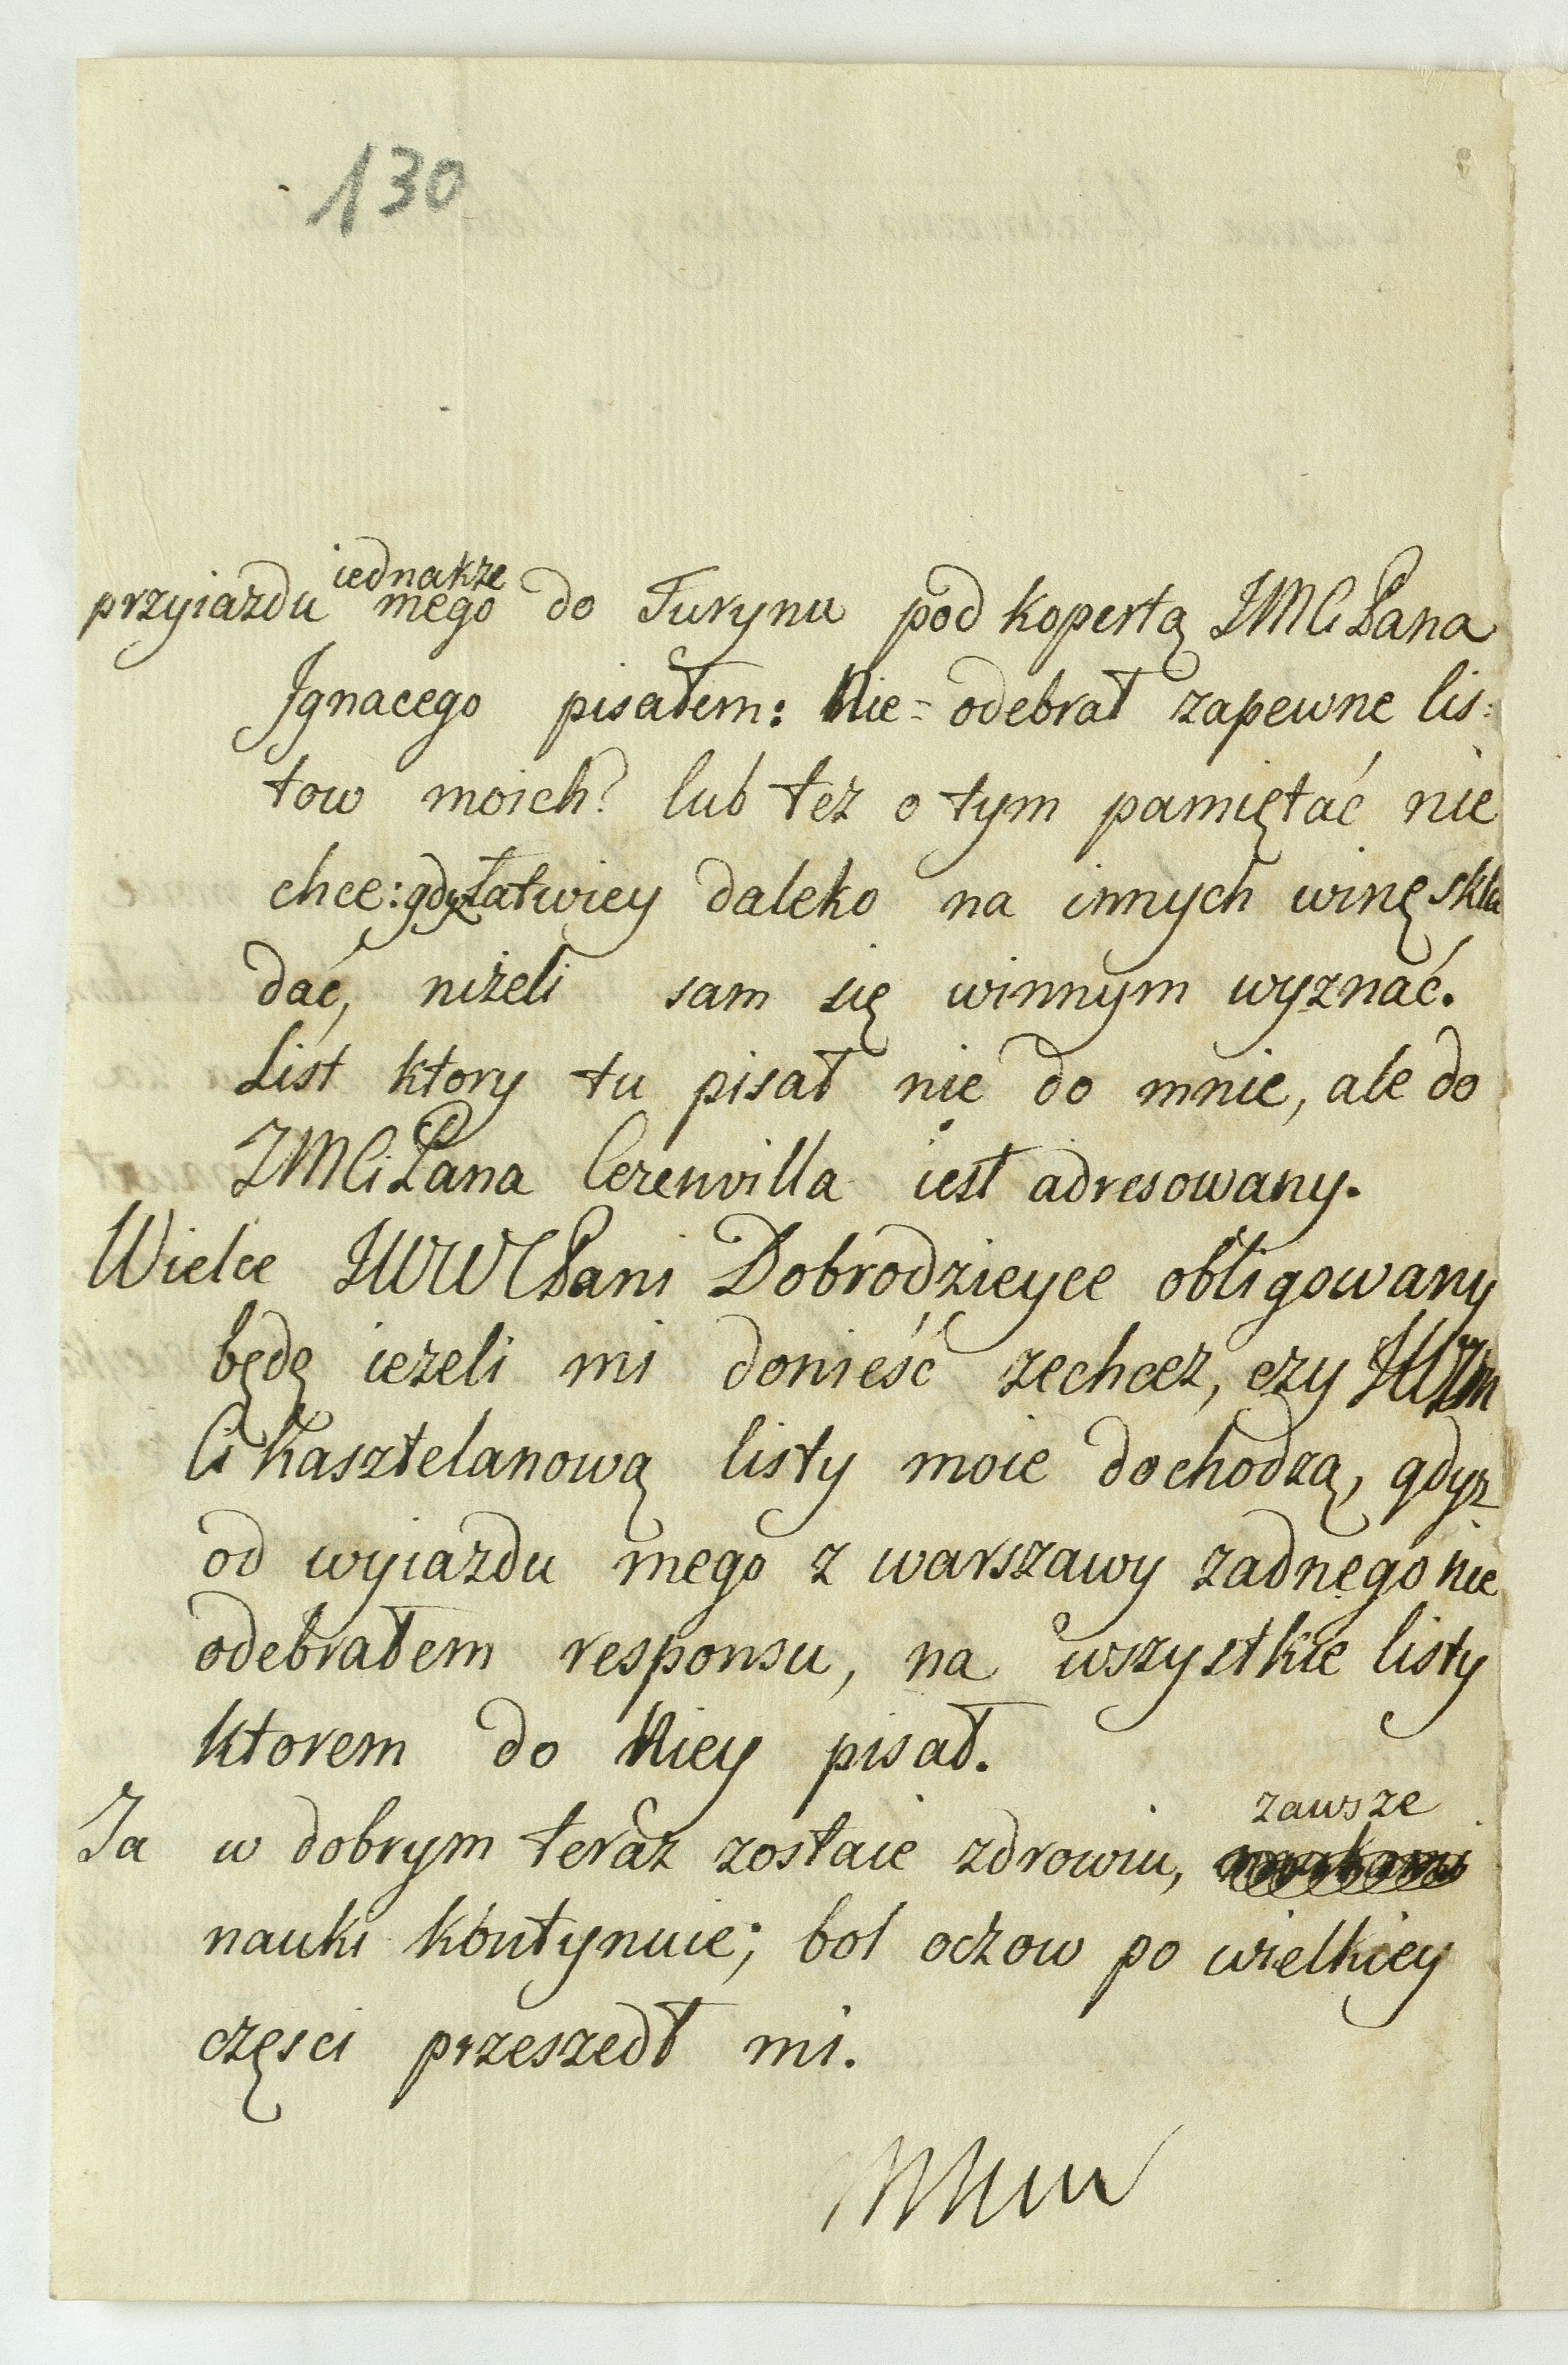 130
iednakze
przyiazdu mego do Turynu pod kopertą JMCi Pana
Jgnacego pisałem: Nie= odebrał zapewne lis=
tow moich? lub tez o tym pamiętać nie
chce: gdyz łatwiey daleko na innych winę skła
dać, niżeli sam się winnym wyznać.
List ktory tu pisał nie do mnie, ale do
JMCi Pana Cerenvilla iest adresowany.
Wielce JWWC Pani Dobrodzieyce obligowany
będę ieżeli mi donieść zechcez, czy JWJm
Ci Kasztelanową listy moie dochodzą, gdyz
od wyiazdu mego z warszawy zadnego nie
odebrałem responsu, na wszystkie listy
ktorem do Niey pisał.
zawsze
Ja w dobrym teraz zostaie zdrowiu,
nauki kontynuie; bol oczow po wielkiey
częsci przeszedł mi.